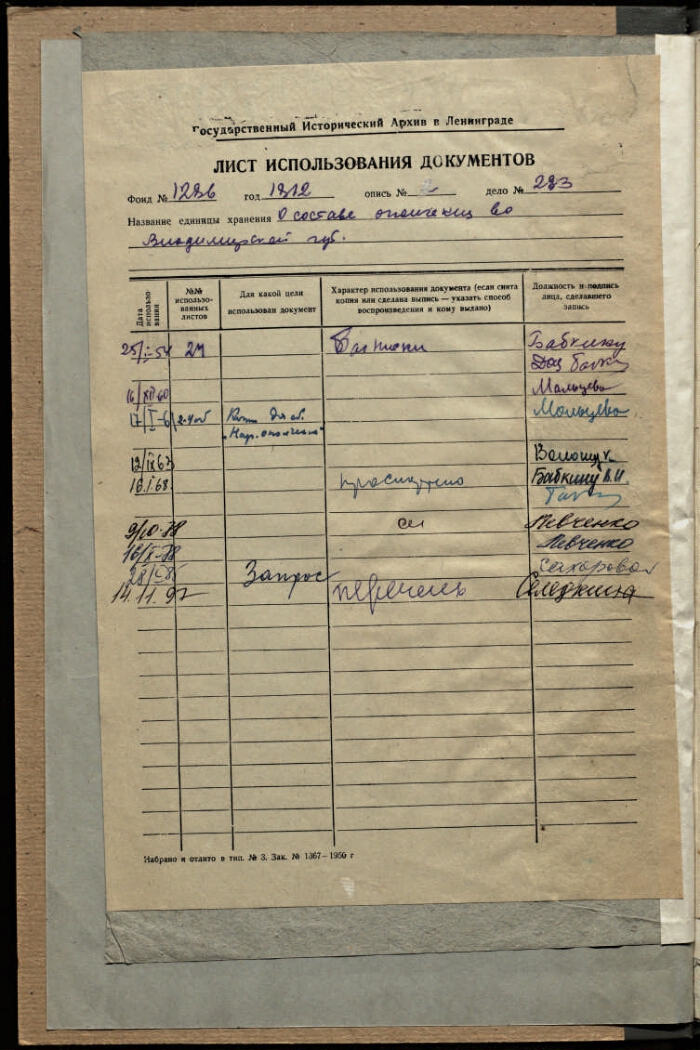 Государственный Исторический Архив в Ленинграде
ЛИСТ ИСПОЛЬЗОВАНИЯ ДОКУМЕНТОВ
Фонд № 1286 год 1812 опись № 2 дело № 283
Название единицы хранения О составе ополчения во
Владимирской губ.
Дата использования
№№ использованных листов
Для какой цели использован документ
Характер использования документа (если снята копия или сделана выпись — указать способ воспроизведения и кому выдано)
Должность и подпись лица, сделавшего запись
25/I-54 Бабкину
16/XII 60 Мальцева
17/I-6 Мальцева
"Нар. ополчение"
12/IX 63 Волощук
16.I.68. просмотрено Бабкину В.И.
9/10-78 Левченко
16/X-78 Левченко
Запрос Сахарова
14.11.97 перечень Селедкина
Набрано и отлито в тип. № 3. Зак. № 1367—1950 г